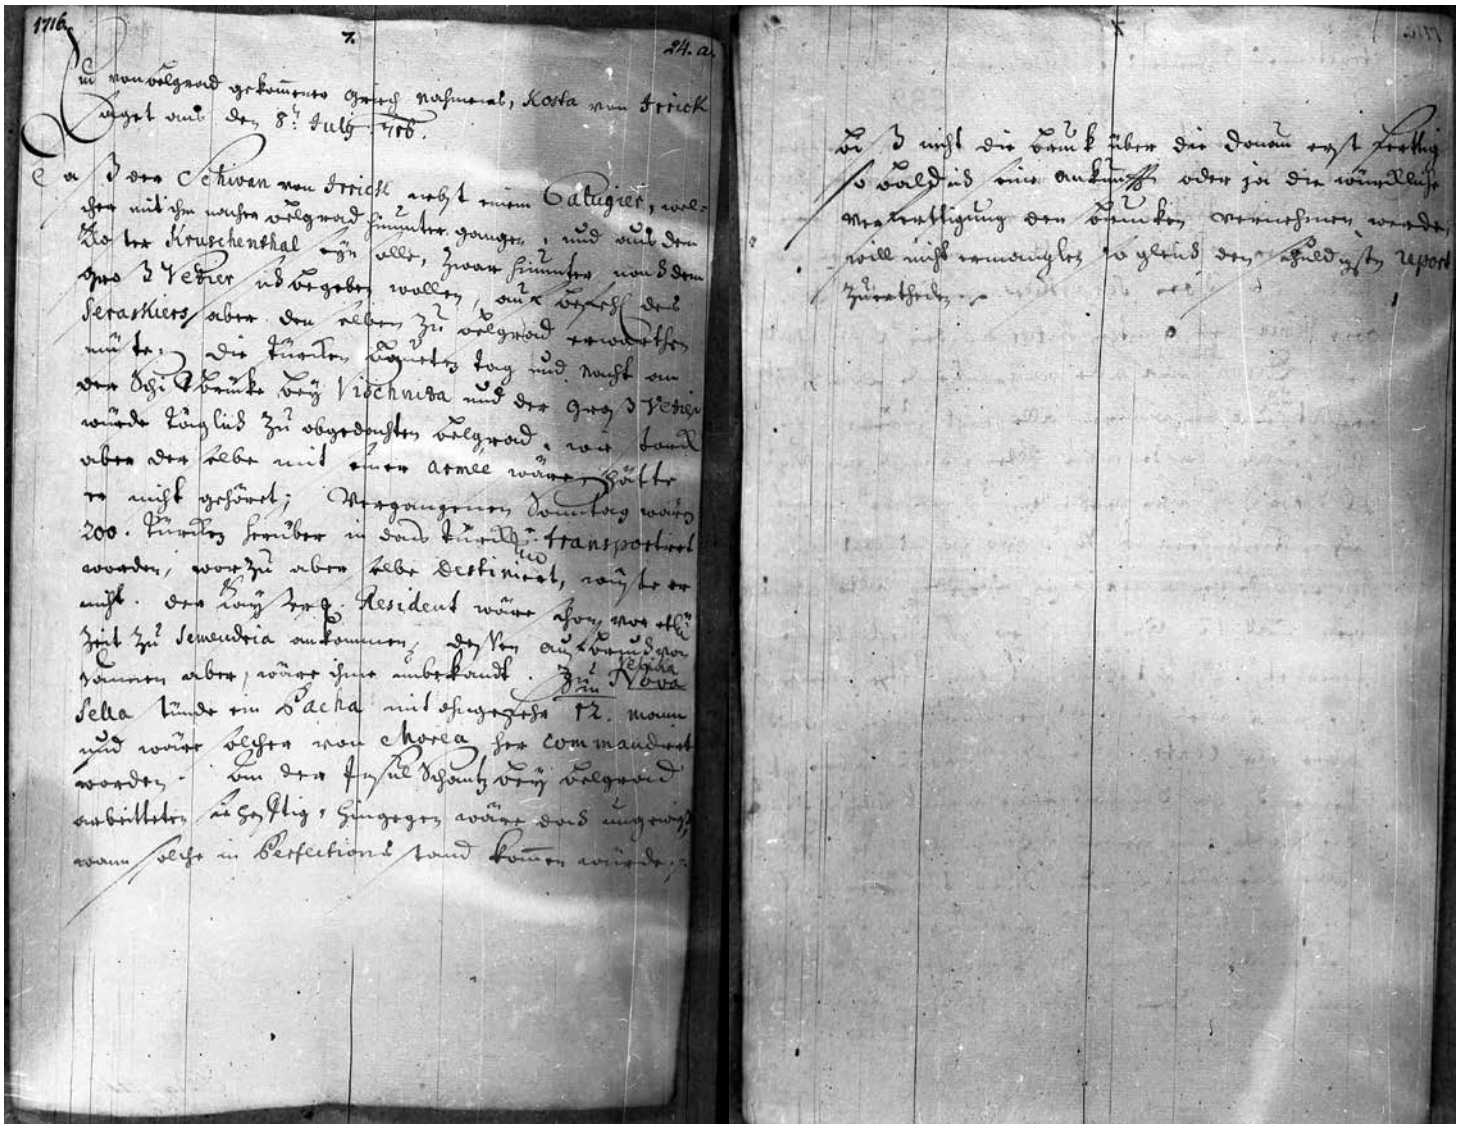 1716.
7.
24. a.
Ein von Belgrad gekommener Griech Nahmens, Kosta von Irrick
saget aus den 8t. July 716.
Daß der Schivan von Irrick nebst einem Calugier, wel-
cher mit ihm nacher Belgrad hinunter gangen, und aus dem
Kloster Kruschenthal seyn solle, zwar hinunter nach dem
Groß Vezier sich begeben wollen, auf Befehl des
Seraskiers aber denselben zu Belgrad erwarthen
müste. Die Türken baueten Tag und Nacht an
der Schifbrücke bey Vischniza und der Groß Vezier
würde täglich zu obgedachten Belgrad, wie starck
aber derselbe mit einer Armée wäre, hätte
er nicht gehöret; Vergangenen Sonntag wären
200. Türcken herüber in das Türckl. transportiret
worden, worzu aber selbe destiniert, wuste er
nicht. Der Kayserl. Resident wäre schon vor etl.
Zeit zu Semendria ankommen, dessen aufbruch von
dannen aber, wäre ihme unbekandt. Zu Nova
Sella stünde ein Bacha mit ohngefehr 12. mann
und wäre solcher von Morea her commandiret
worden. An der Insul Schantz bey Belgrad
arbeitteten sie hefftig, hingegen wäre das ungewiß,
wann solche in Perfections stand kommen würde.
biß nicht die Bruck über die Donau erst fertig
so bald ich seine ankunfft oder ja die würckliche
verferttigung der Brucken vernehmen werde,
will nicht ermanglen so gleich den schuldigsten report
zu ertheilen.